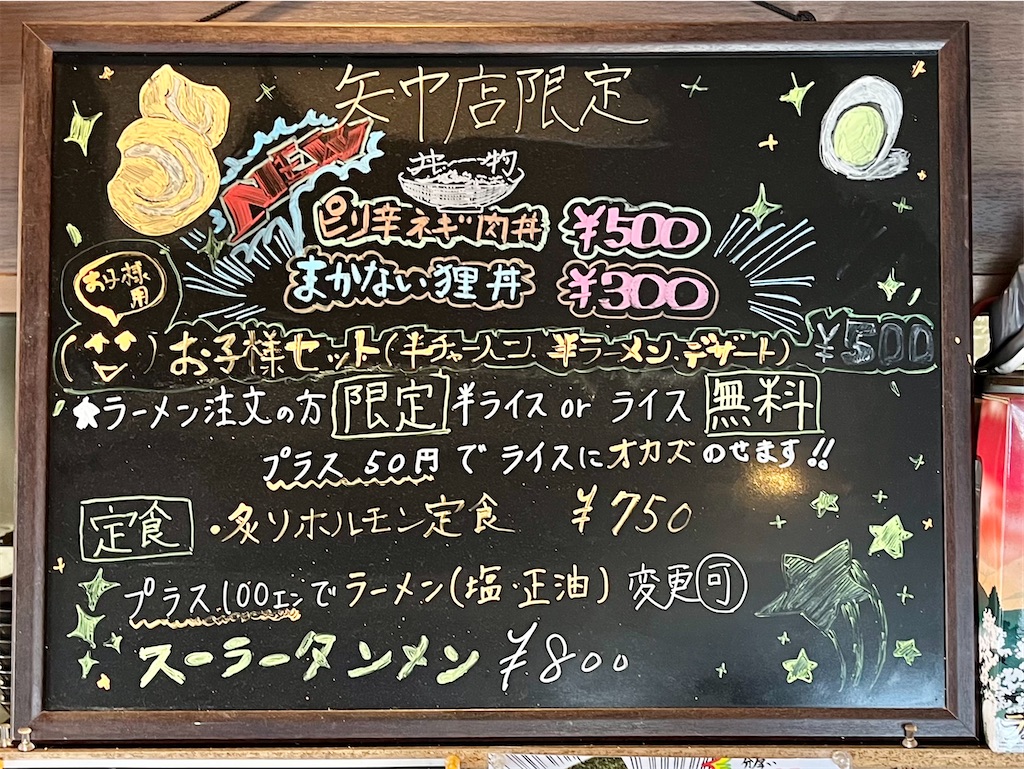 矢中店限定
NEW
丼物
ピリ辛ネギ肉丼 ¥500
まかない狸丼 ¥300
お子様用
お子様セット(半チャーハン、半ラーメン、デザート) ¥500
★ラーメン注文の方 限定 半ライス or ライス 無料
プラス50円でライスにオカズのせます!!
定食 ・炙リホルモン定食 ¥750
プラス100エンでラーメン(塩・正油)変更可
スーラータンメン ¥800